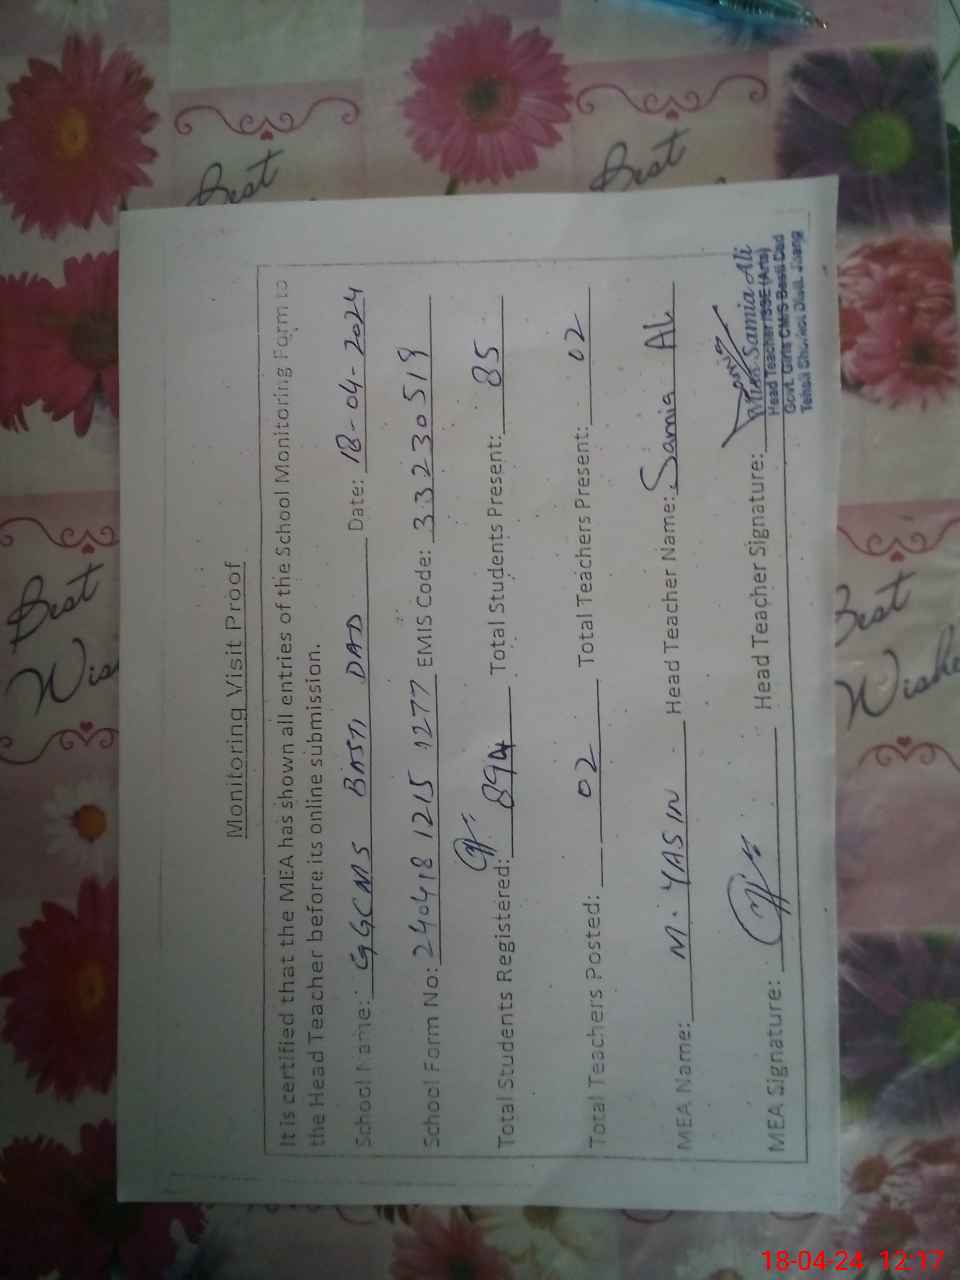 Monitoring Visit Proof
It is certified that the MEA has shown all entries of the School Monitoring Form to
the Head Teacher before its online submission.
School Name: GGCMS BASTI DAD Date: 18-04-2024
School Form No: 240418 1215 1277 EMIS Code: 33230519
Total Students Registered: 894 Total Students Present: 85
Total Teachers Posted: 02 Total Teachers Present: 02
MEA Name: M. YASIN Head Teacher Name: Samia Ali
MEA Signature: Head Teacher Signature:
Samia Ali
Head Teacher (SSE (Arts)
Govt. Girls CM/S Basti Dad
Tehsil Shorkot Distt. Jhang
Best
Best
Best
Best
Wishe
18-04-24 12:17